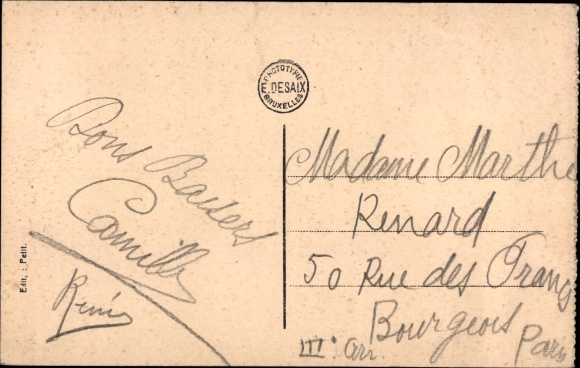 PHOTOTYPIE
E. DESAIX
BRUXELLES
Bons Baisers
Camille
René
Edit. : Petit.
Madame Marthe
Renard
50 Rue des Francs
Bourgeois
III e arr. Paris